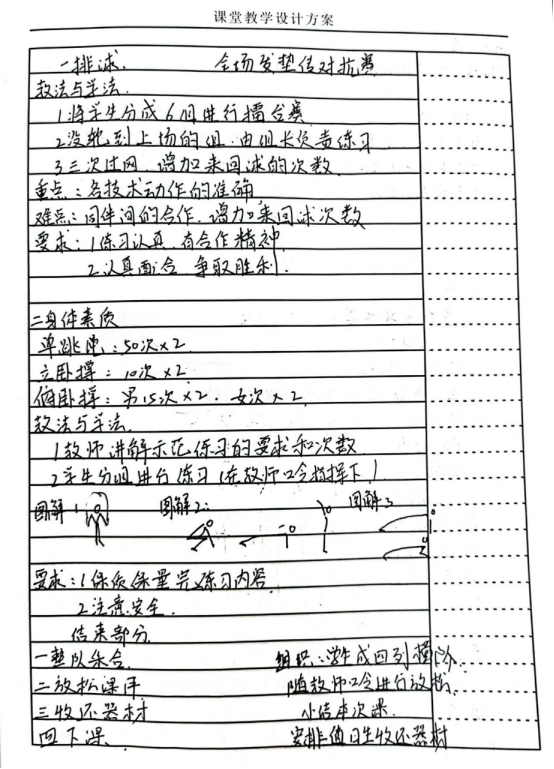 课堂教学设计方案
一排球. 全场发垫传对抗赛
教法与学法.
1将学生分成6组进行擂台赛
2没轮到上场的组.由组长负责练习
3三次过网.增加来回球的次数
重点:各技术动作的准确
难点:同伴间的合作.增加来回球次数
要求:1练习认真.有合作精神
2认真配合.争取胜利.
二身体素质
单跳绳:50次×2
立卧撑:10次×2
俯卧撑:男15次×2.女次×2
教法与学法.
1教师讲解示范练习的要求和次数
2学生分组进行练习(在教师口令指挥下)
图解1: 图解2: 图解3
要求:1保质保量完成练习内容
2注意安全.
结束部分.
一整队集合. 组织:学生成四列横队.
二放松课操 随教师口令进行放松.
三收还器材 小结本次课.
四下课. 安排值日生收还器材